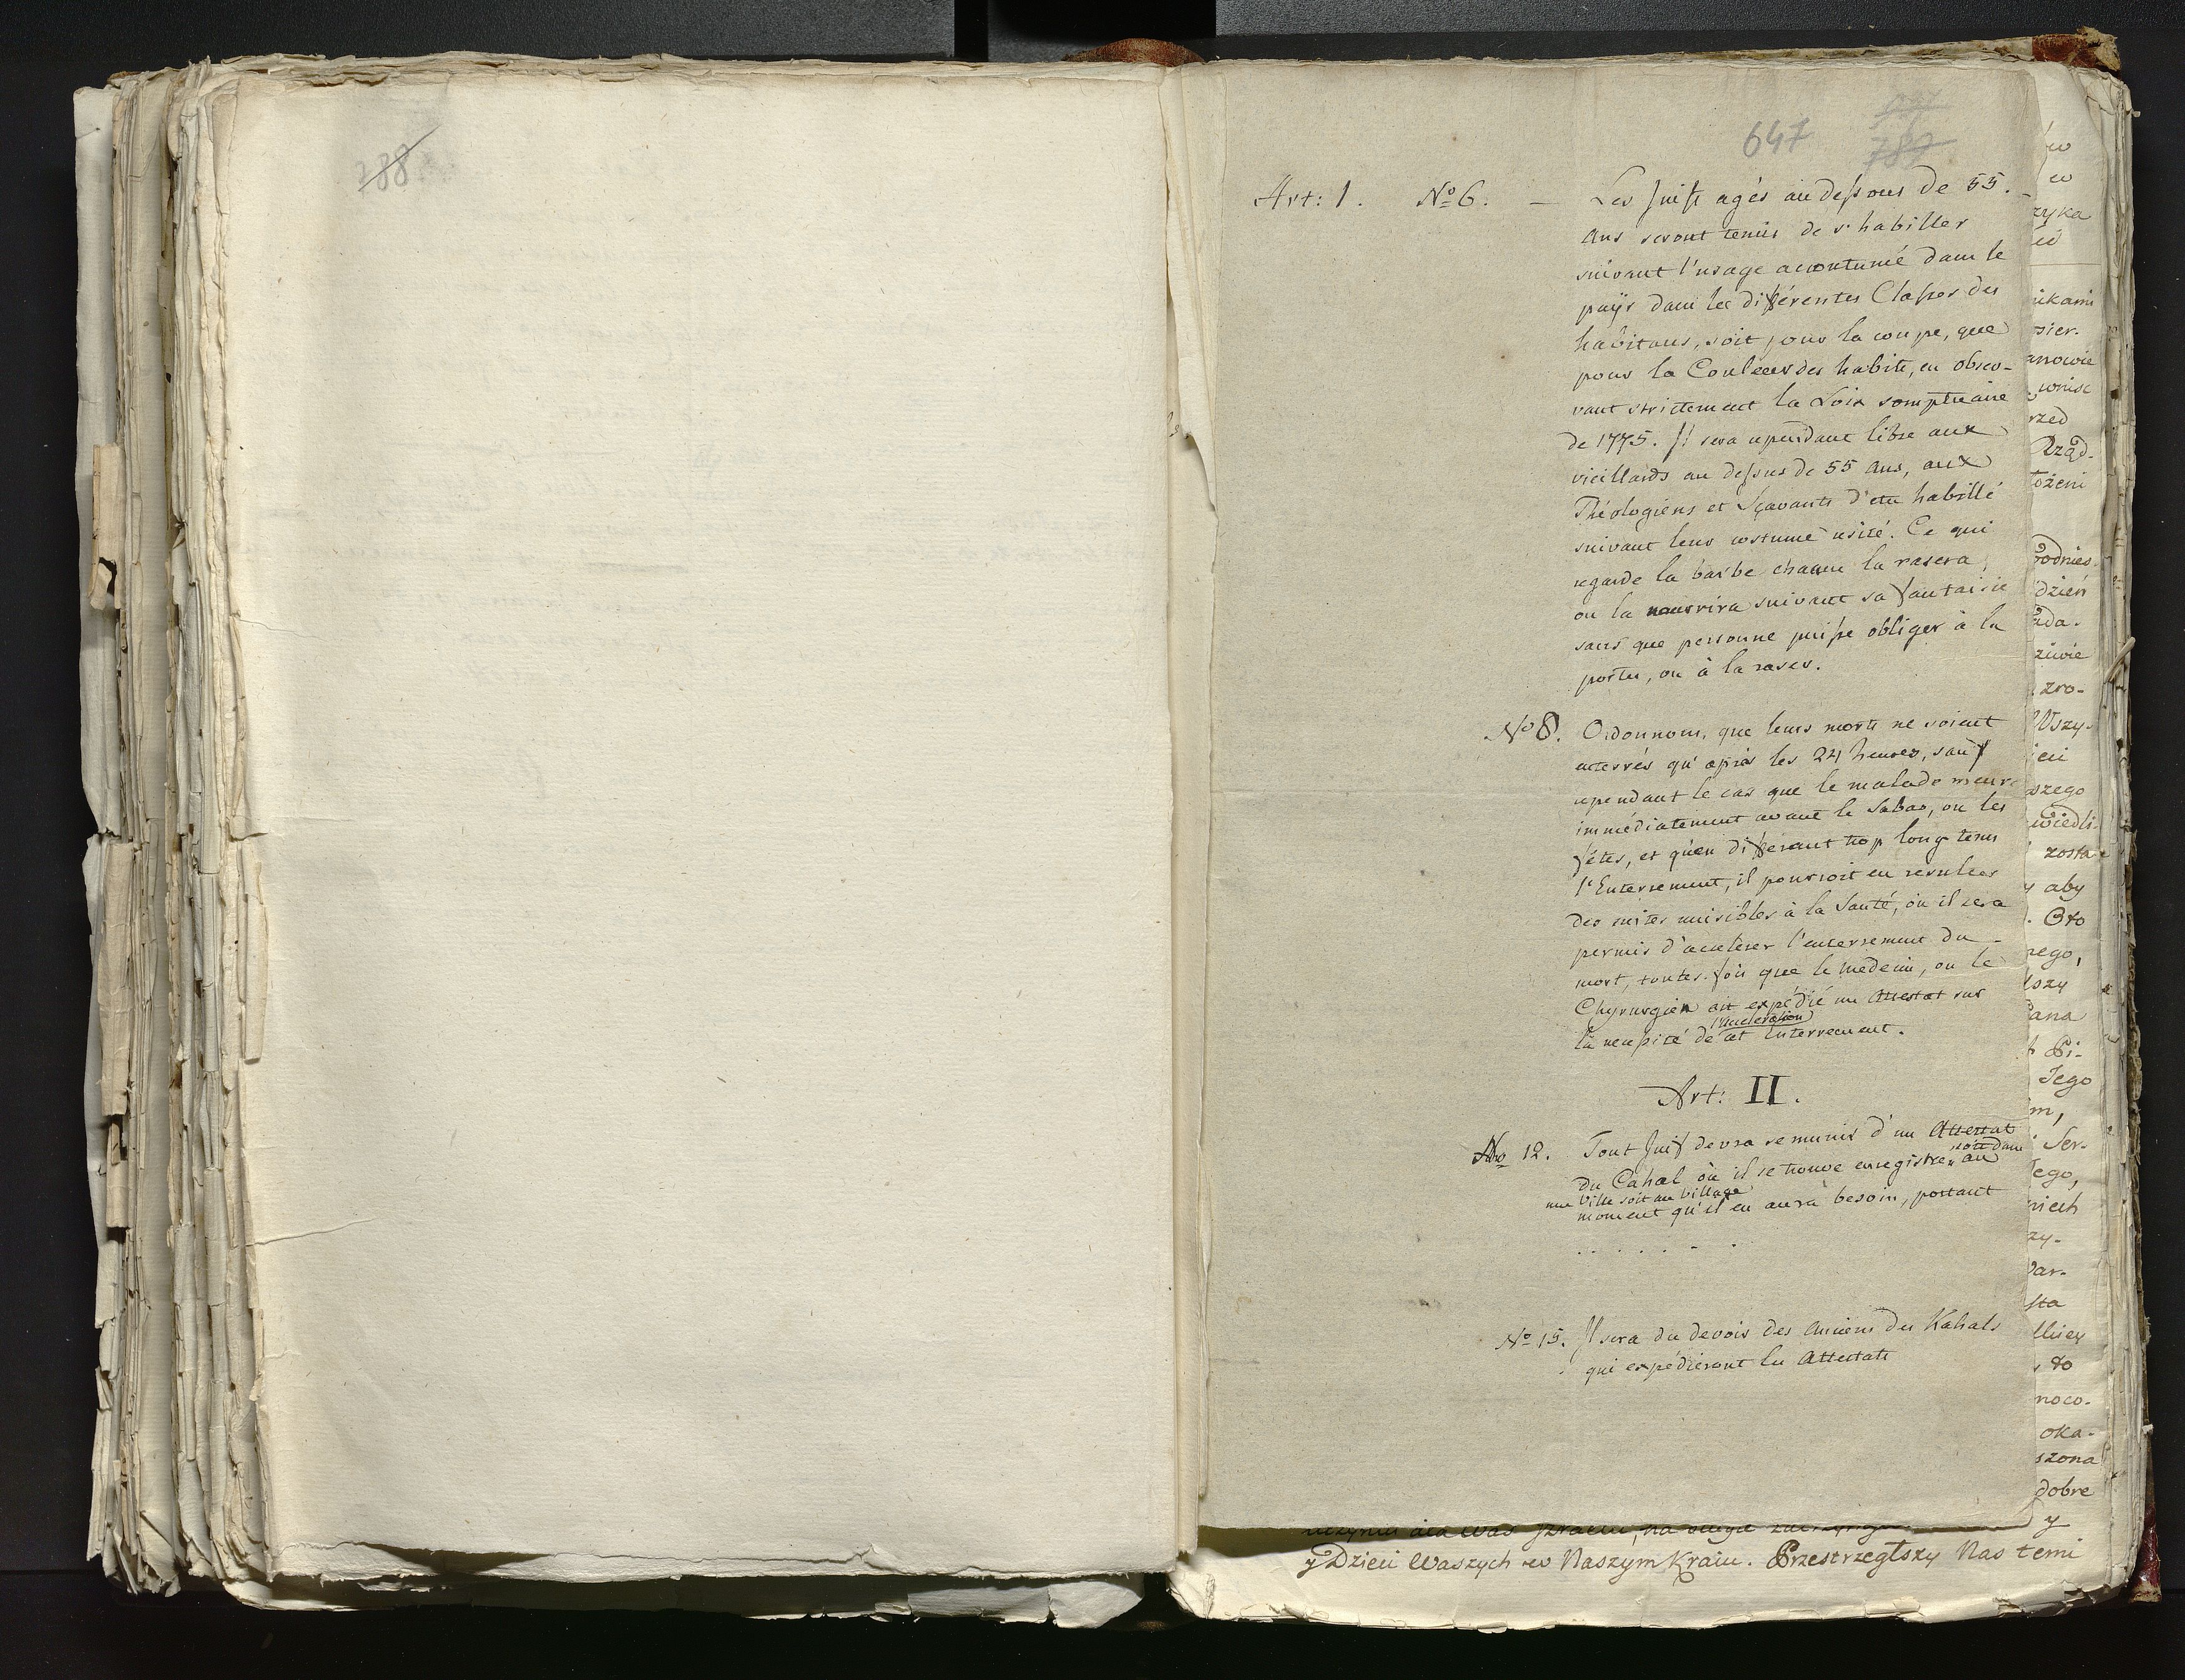 288
647
787
Art: 1. No 6. — Les Juifs agés au dessous de 55.
Ans seront tenus de s'habiller
suivant l'usage accoutumé dans le
païs dans les différentes Classes des
habitans, soit pour la coupe, que
pour la Couleur des habits, en obser-
vant strictement la Loix somptuaire
de 1775. Il sera cependant libre aux
vieillards au dessus de 55 Ans, aux
Théologiens et Sçavants d'etre habillé
suivant leur costume usité. Ce qui
regarde la barbe chacun la rasera,
ou la nourrira suivant sa fantaisie
sans que personne puisse obliger à la
porter, ou à la raser.
No 8. Ordonnons, que leurs morts ne soient
enterrés qu'après les 24 heures, sauf
cependant le cas que le malade meure
immédiatement avant le Sabas, ou les
fêtes, et qu'en différant trop long tems
l'Enterrement, il pourroit en resulter
des suites nuisibles à la Santé, où il sera
permis d'accelerer l'enterrement du
mort, toutes-fois que le medecin, ou le
Chyrurgien ait expédié un Attestat sur
l'acceleration
la necessité de cet Enterrement.
Art: II.
No 12. Tout Juif devra se munir d'un Attestat
soit dans
du Cahal où il se trouve enregistré au
une Ville soit au village
moment qu'il en aura besoin, portant
. . . . . . .
No 15. Il sera du devoir des Anciens des Kahals
qui expédieront les Attestats
w
w
zyka
ikami
sier.
anowie
rzed
Rząd.
tożeni
dzień
ada.
zro-
Wszy-
szego
wiedli-
zosta
aby
Oto
nego,
Pana
Jego
Ser-
niech
zy-
sta
to
noco-
oka-
szona
dobre
y
y Dzieci Waszych w Naszym Kraiu. Przestrzegłszy Nas temi